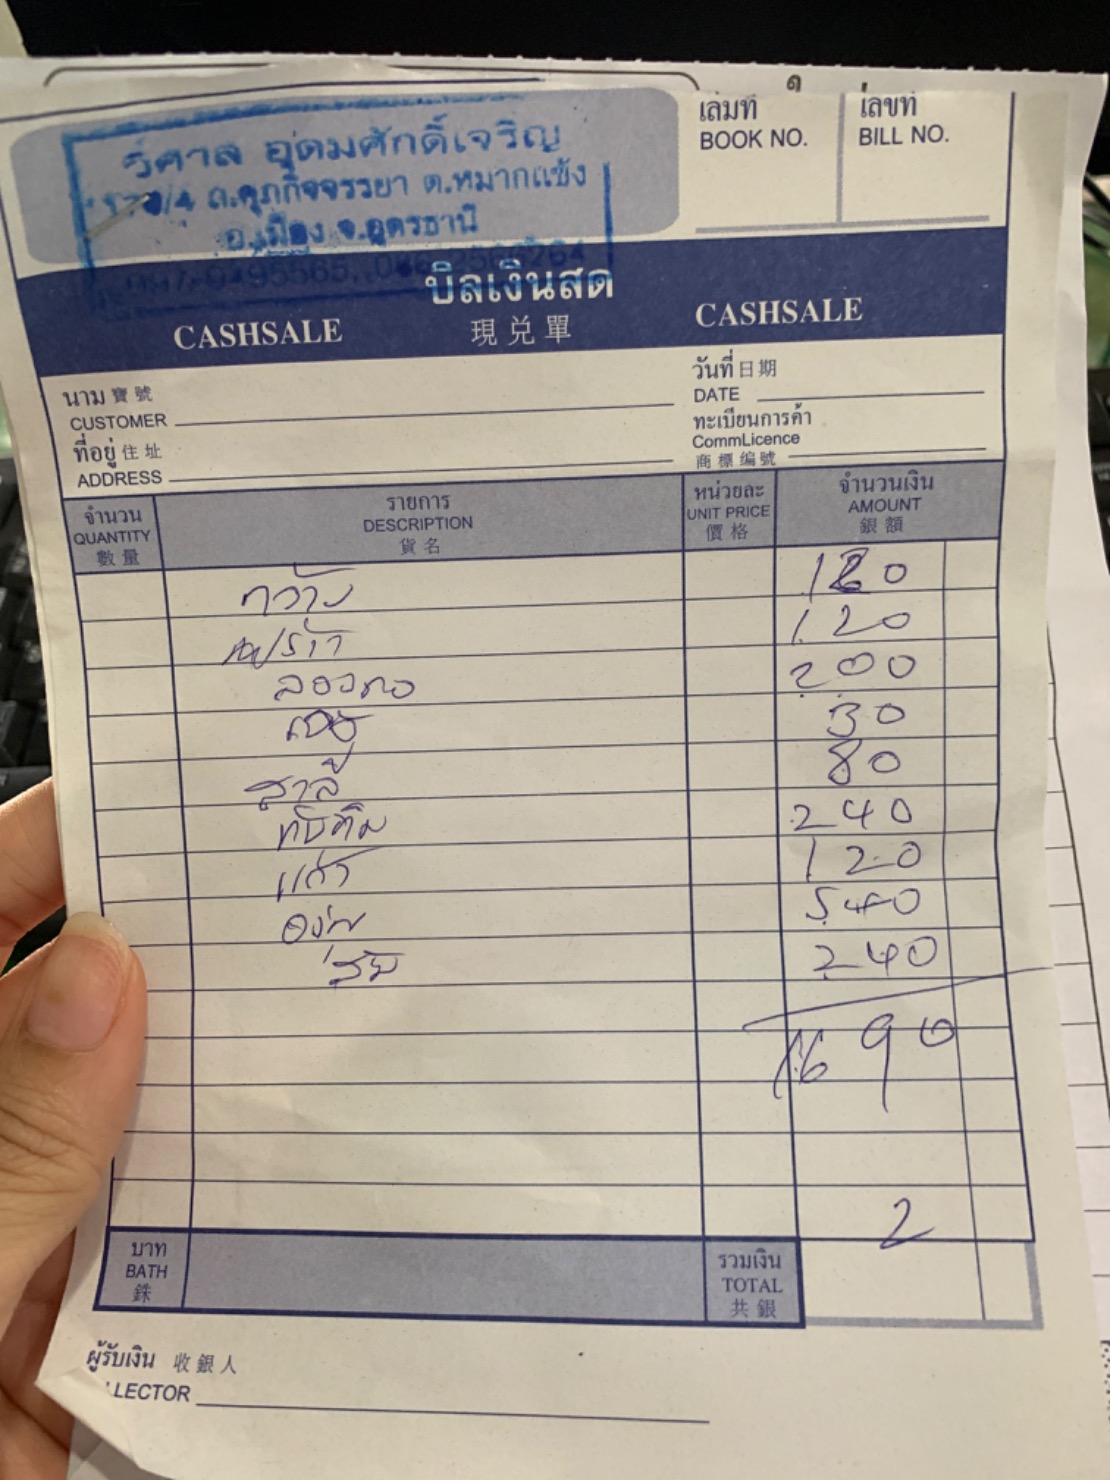 เล่มที่ เลขที่
BOOK NO. BILL NO.
วิศาล อุดมศักดิ์เจริญ
ถ.ศุภกิจจรรยา ต.หมากแข้ง
อ.เมือง จ.อุดรธานี
บิลเงินสด
CASHSALE 現兌單 CASHSALE
นาม 寶號
CUSTOMER
วันที่ 日期
DATE
ที่อยู่ 住址
ADDRESS
ทะเบียนการค้า
CommLicence
商標编號
จำนวน รายการ หน่วยละ จำนวนเงิน
QUANTITY DESCRIPTION UNIT PRICE AMOUNT
數量 貨名 價格 銀額
กวาง
120
200
30
สาลี่ 80
ทับทิม 240
120
องุ่น 540
240
1690
2
บาท รวมเงิน
BATH TOTAL
銖 共銀
ผู้รับเงิน 收銀人
LLECTOR